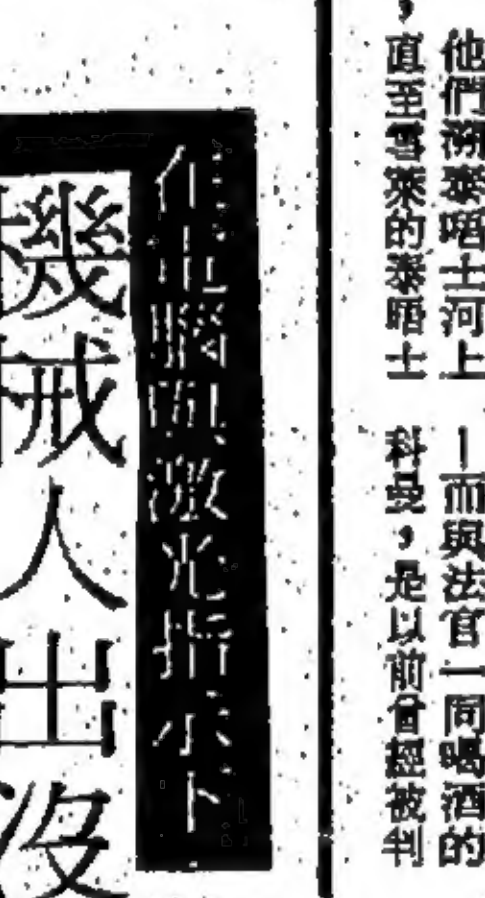 他們溯泰晤士河上
，直至雪萊的泰晤士
—而與法官一同喝酒的
科曼，是以前曾經被判
在電腦與激光指示下
機械人出沒